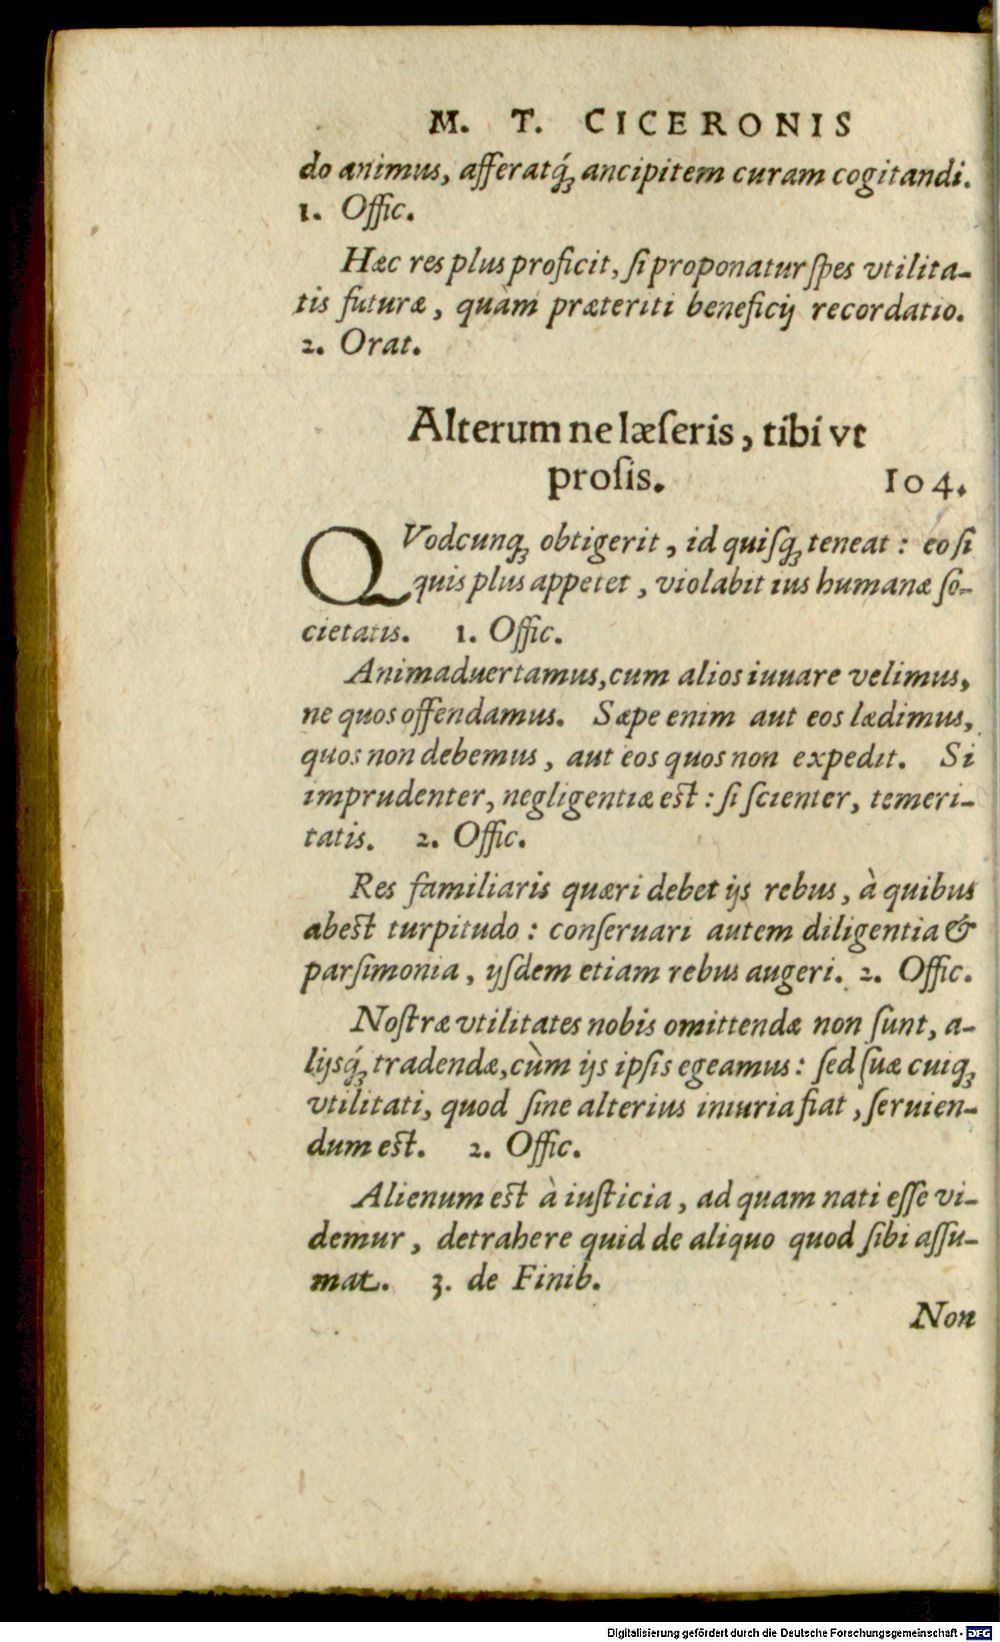 M. T. CICERONIS
do animus, afferatq́ꝫ ancipitem curam cogitandi.
1. Offic.
Hæc res plus proficit, ſi proponatur ſpes vtilita-
tis futuræ, quàm præteriti beneficij recordatio.
2. Orat.
Alterum ne læſeris, tibi vt
proſis. 104.
QVodcunqꝫ obtigerit, id quiſqꝫ teneat: eo ſi
quis plus appetet, violabit ius humanæ ſo-
cietatis. 1. Offic.
Animaduertamus, cum alios iuuare velimus,
ne quos offendamus. Sæpe enim aut eos lædimus,
quos non debemus, aut eos quos non expedit. Si
imprudenter, negligentiæ eſt: ſi ſcienter, temeri-
tatis. 2. Offic.
Res familiaris quæri debet ijs rebus, à quibus
abeſt turpitudo: conſeruari autem diligentia &
parſimonia, ijſdem etiam rebus augeri. 2. Offic.
Noſtræ vtilitates nobis omittendæ non ſunt, a-
lijsq́ꝫ tradendæ, cùm ijs ipſis egeamus: ſed ſuæ cuiqꝫ
vtilitati, quod ſine alterius iniuria fiat, ſeruien-
dum eſt. 2. Offic.
Alienum eſt à iuſticia, ad quam nati eſſe vi-
demur, detrahere quid de aliquo quod ſibi aſſu-
mat. 3. de Finib.
Non
Digitalisierung gefördert durch die Deutsche Forschungsgemeinschaft - DFG